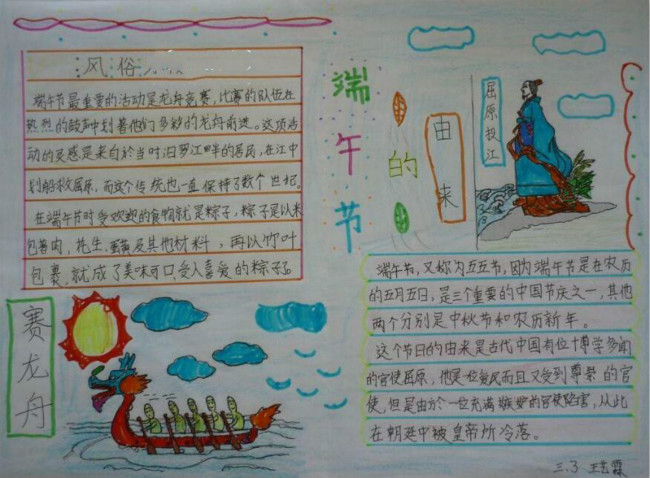 风俗
端午节最重要的活动是龙舟竞赛,比赛的队伍在
热烈的鼓声中划著他们多彩的龙舟前进。这项活
动的灵感是来自於当时汨罗江畔的居民,在江中
划船救屈原,而这个传统也一直保持了数个世纪。
在端午节时受欢迎的食物就是粽子,粽子是以米
包著肉、花生、蛋黄及其他材料,再以竹叶
包裹,就成了美味可口,受人喜爱的粽子。
赛龙舟
端午节
的
由来
屈原投江
端午节,又称为五五节,因为端午节是在农历
的五月五日,是三个重要的中国节庆之一,其他
两个分别是中秋节和农历新年。
这个节日的由来是古代中国有位博学多闻
的官使屈原,他是位爱民而且又受到尊崇的官
使,但是由於一位充满嫉妒的官使陷害,从此
在朝廷中被皇帝所冷落。
三.3